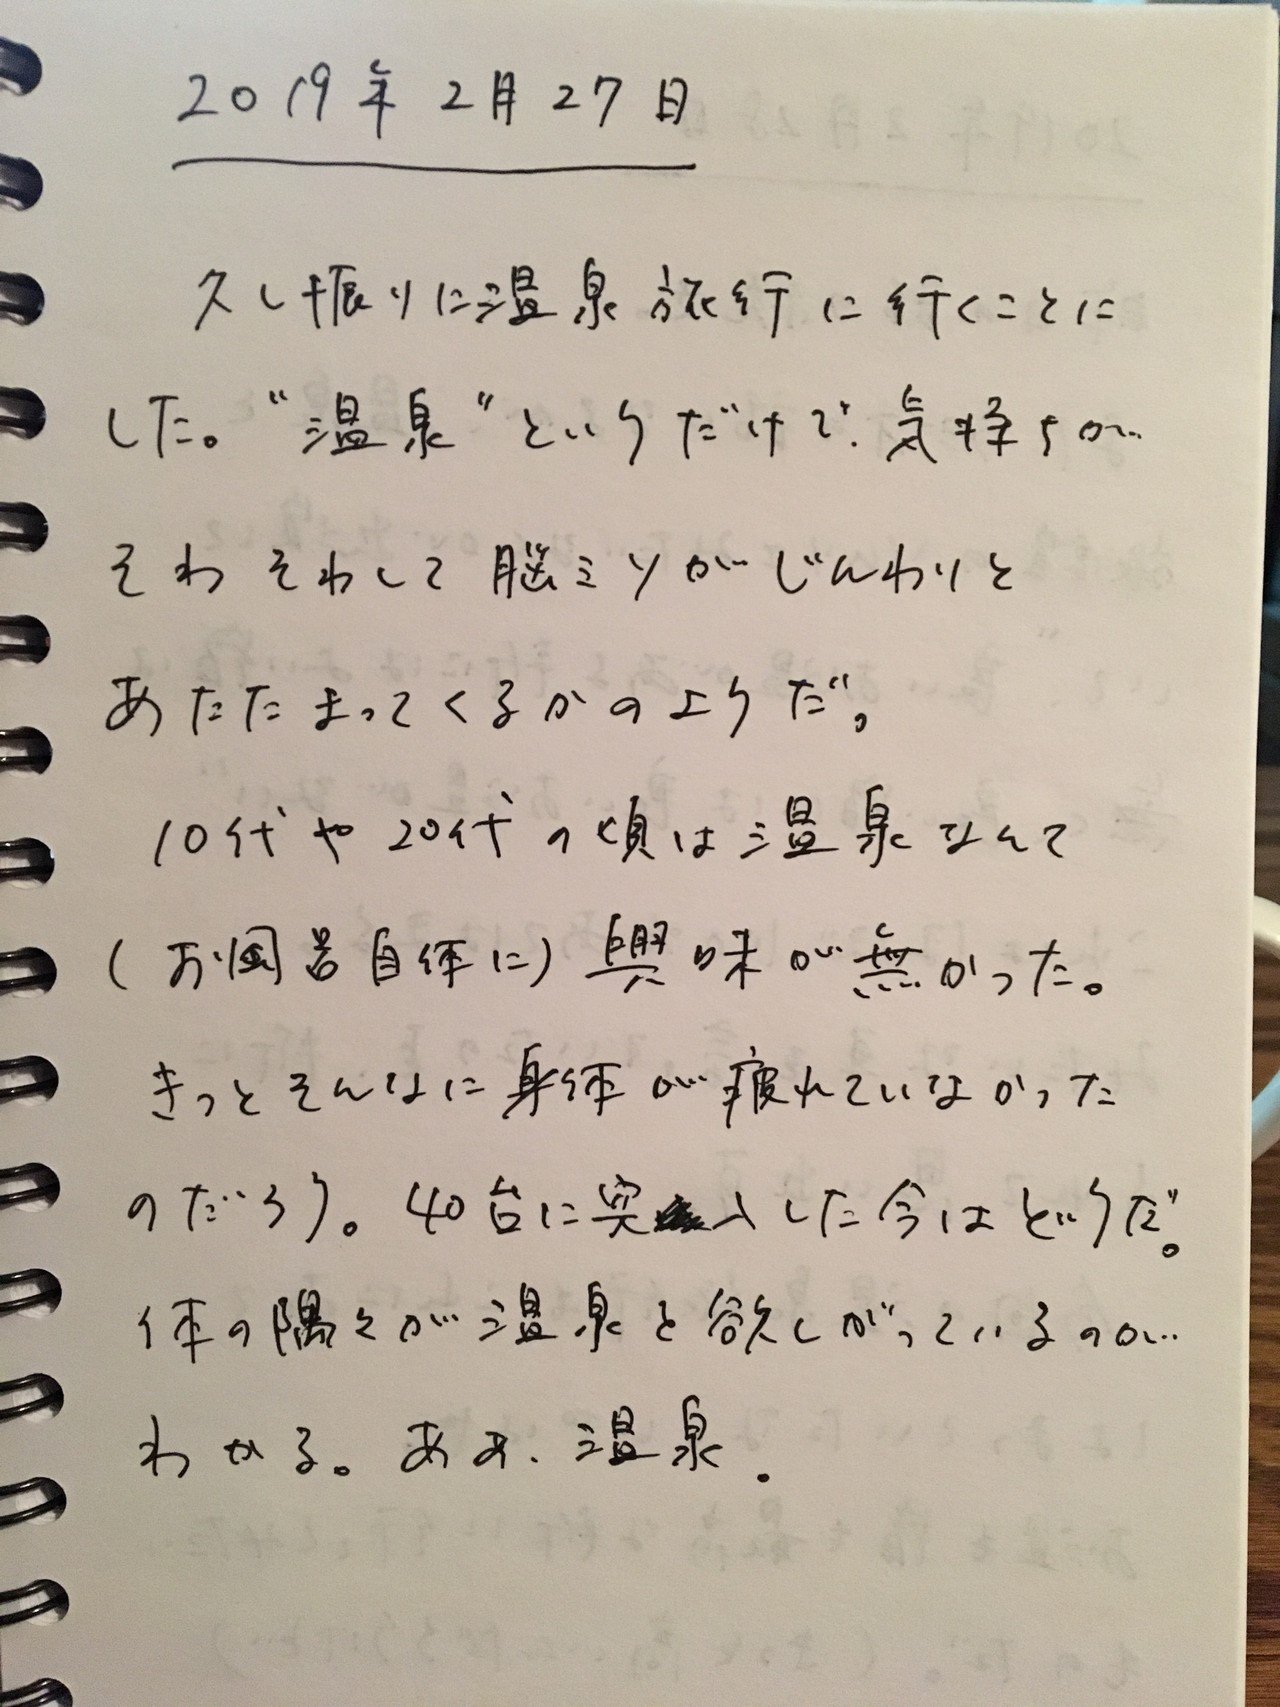 2019年2月27日
久し振りに温泉旅行に行くことに
した。“温泉”というだけで、気持ちが
そわそわして脳ミソがじんわりと
あたたまってくるかのようだ。
10代や20代の頃は温泉なんて
(お風呂自体に)興味が無かった。
きっとそんなに身体が疲れていなかった
のだろう。40台に突入した今はどうだ。
体の隅々が温泉を欲しがっているのが
わかる。あぁ、温泉。